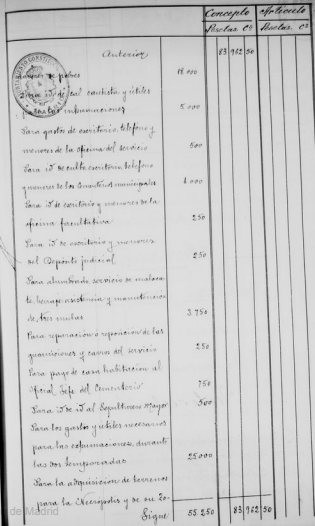 Concepto Artículo
Pesetas Cs Pesetas Cs
Anterior 83 962 50
de pobres 18 000
id de cal caustica y útiles
para las inhumaciones 5 000
Para gastos de escritorio, teléfono y
menores de la oficina del servicio 500
Para id de culto escritorio teléfono
y menores de los Cementerios municipales 4 000
Para id de escritorio y menores de la
oficina facultativa 250
Para id de escritorio y menores
del Depósito judicial 250
Para abundo de servicio de
te, herraje asistencia y manutención
de tres mulas 3.750
Para reparación o reposición de las
guarniciones y carros del servicio 250
Para pago de casa habitación al
Oficial Jefe del Cementerio 750
Para id de id al Sepulturero Mayor 500
Para los gastos y útiles necesarios
para las exhumaciones, durante
las dos temporadas 25000
Para la adquisición de terrenos
para la Necrópolis y de su Zo-
Sigue 55.250 83 962 50
de Madrid